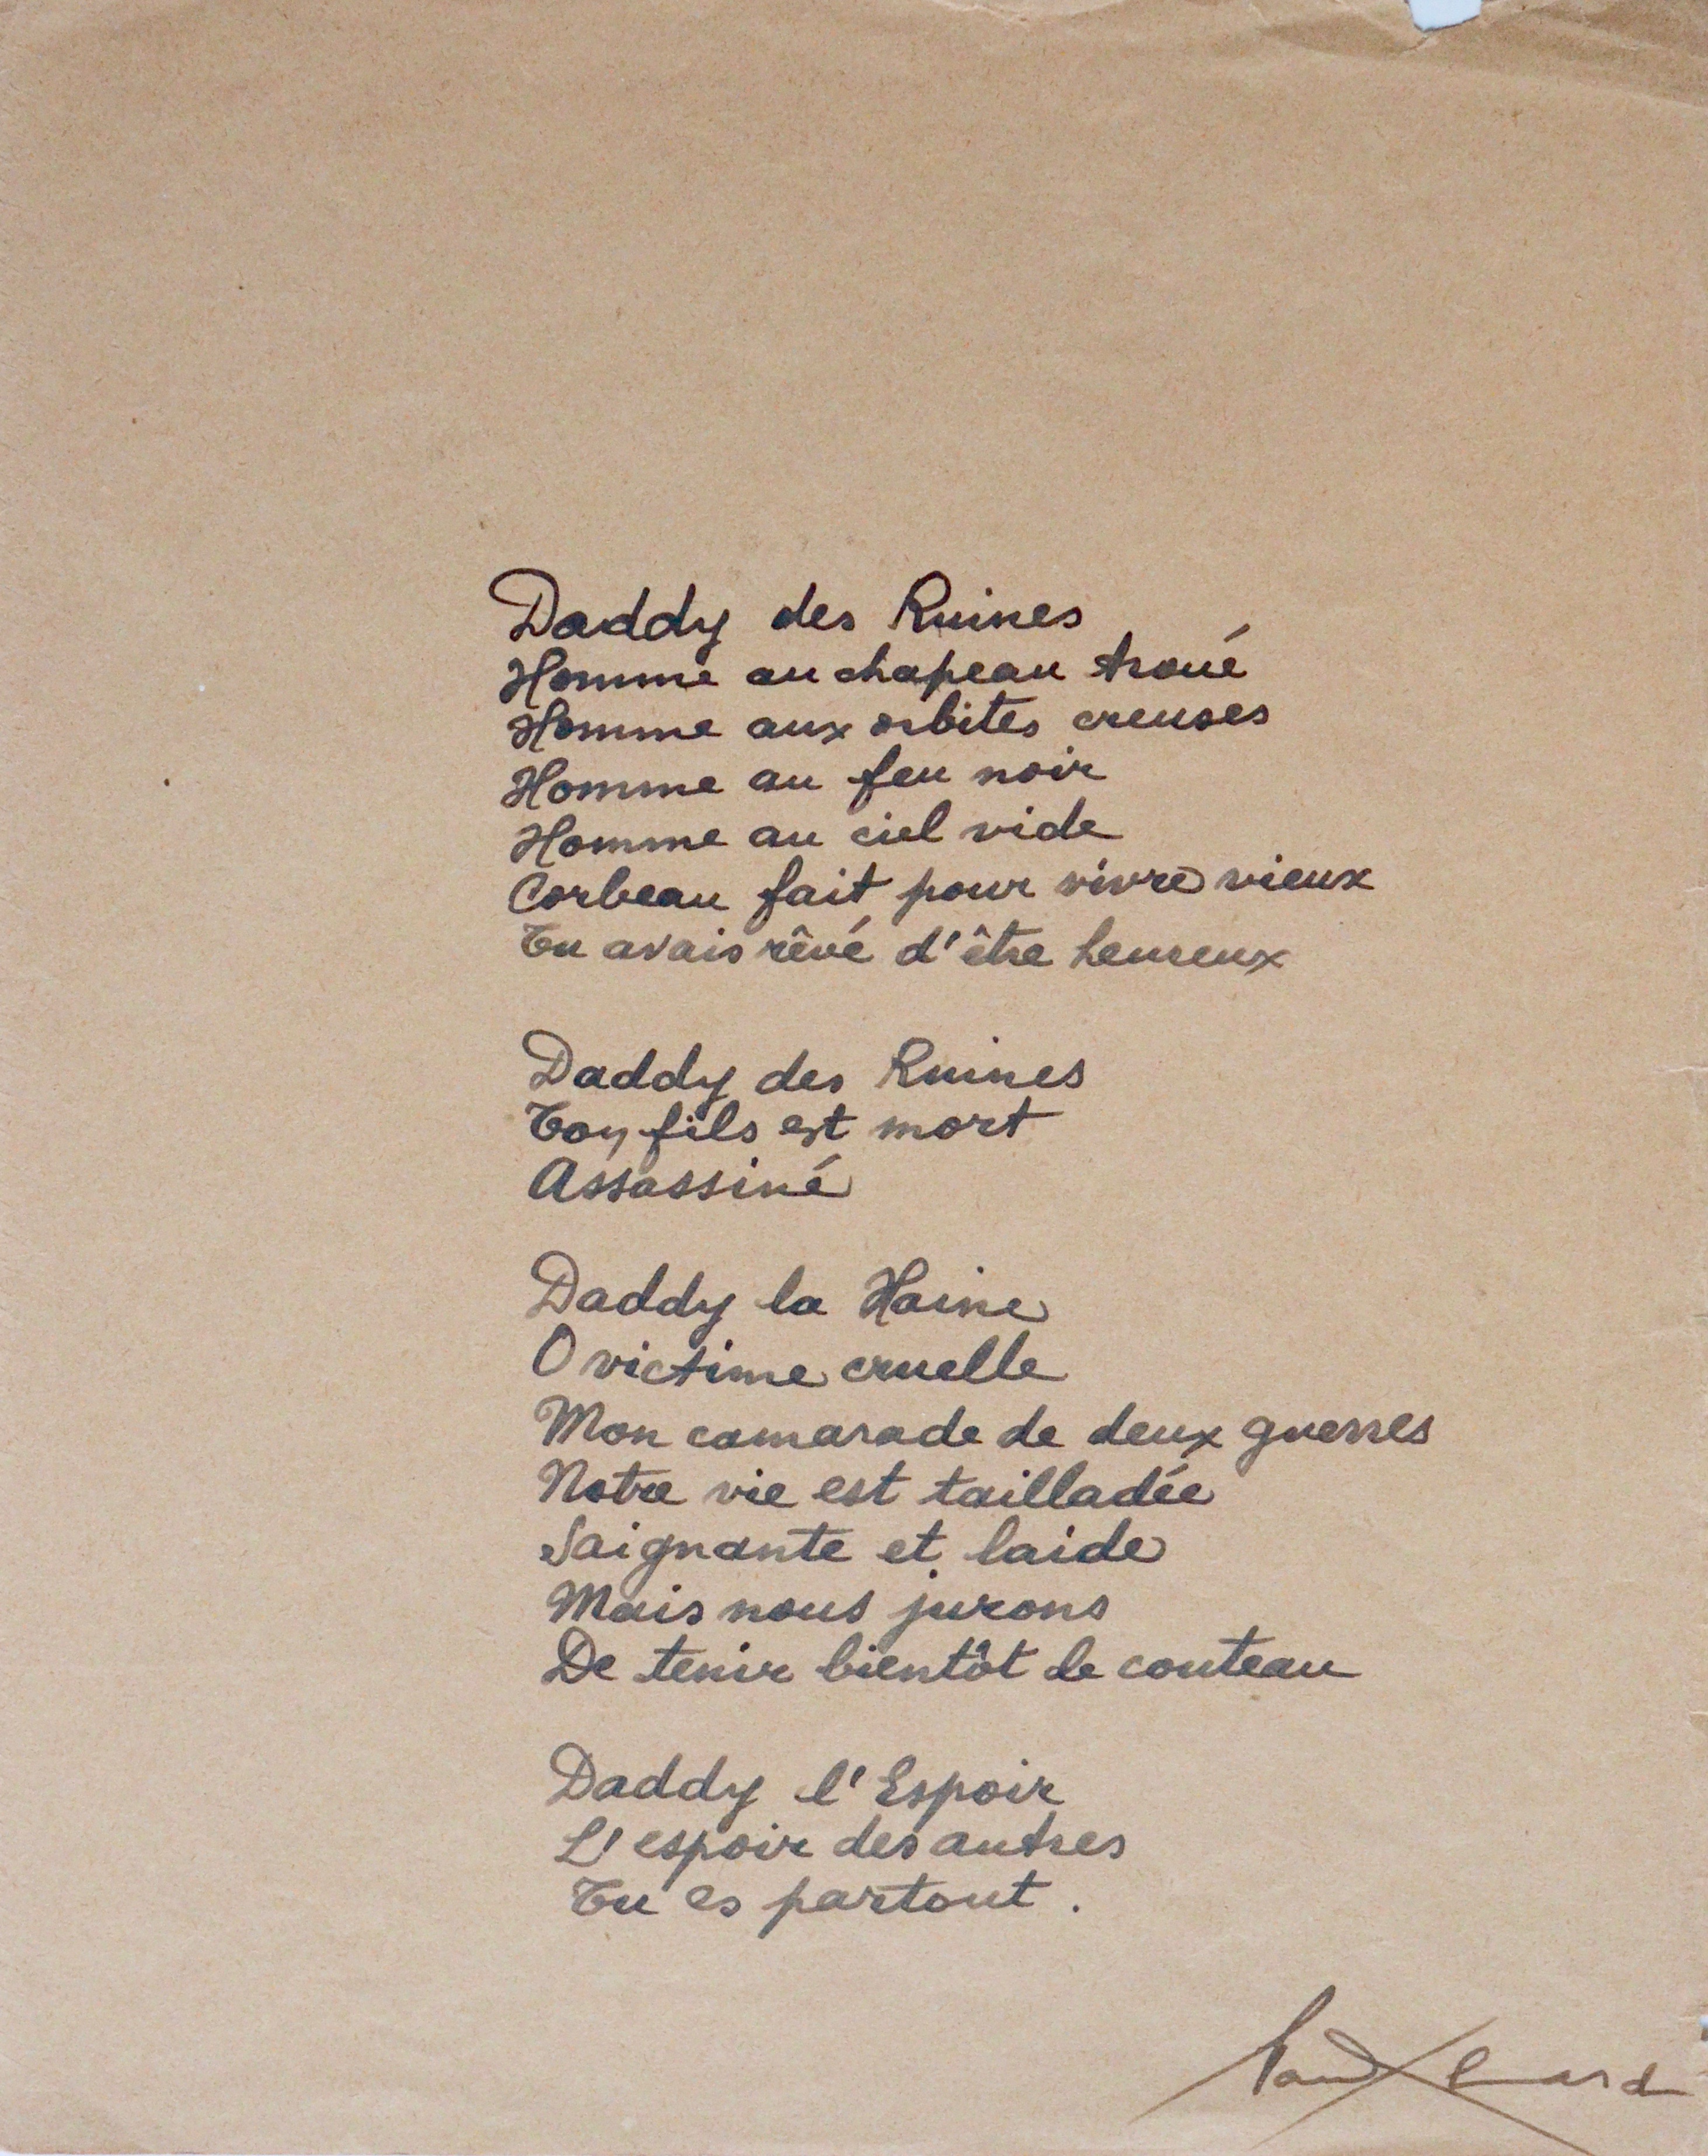 Daddy des Ruines
Homme au chapeau troué
Homme aux orbites creuses
Homme au feu noir
Homme au ciel vide
Corbeau fait pour vivre vieux
Tu avais rêvé d'être heureux
Daddy des Ruines
Ton fils est mort
Assassiné
Daddy la Haine
O victime cruelle
Mon camarade de deux guerres
Notre vie est tailladée
Saignante et laide
Mais nous jurons
De tenir bientôt le couteau
Daddy l'Espoir
L'espoir des autres
Tu es partout.
Paul Eluard